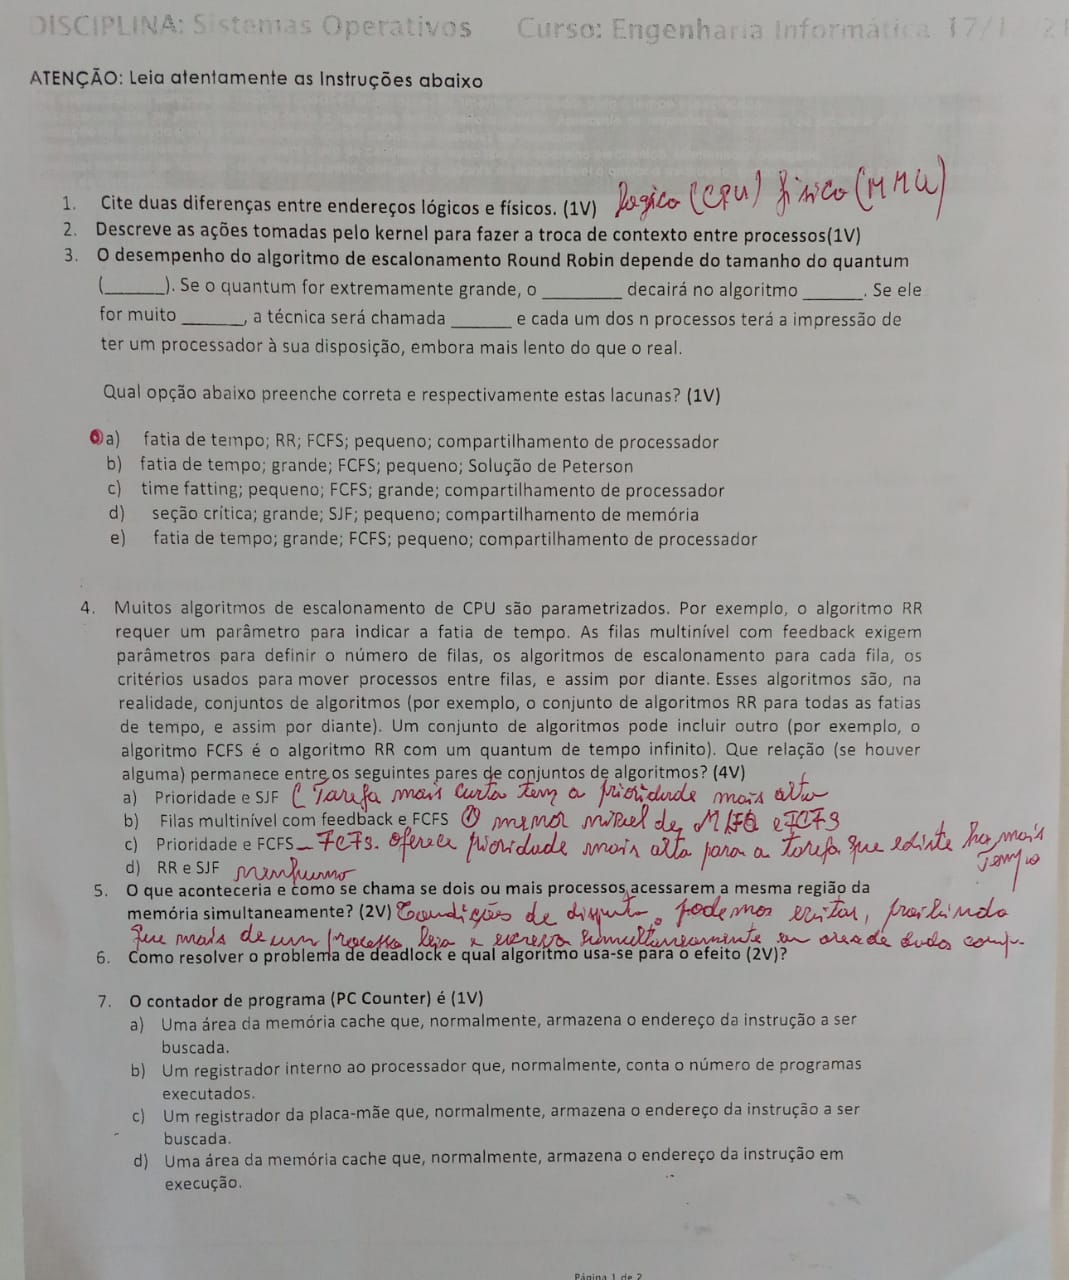 DISCIPLINA: Sistemas Operativos Curso: Engenharia Informática 17/1
ATENÇÃO: Leia atentamente as Instruções abaixo
1. Cite duas diferenças entre endereços lógicos e físicos. (1V) Logico (CPU) físico (MMU)
2. Descreve as ações tomadas pelo kernel para fazer a troca de contexto entre processos(1V)
3. O desempenho do algoritmo de escalonamento Round Robin depende do tamanho do quantum
(______). Se o quantum for extremamente grande, o ________ decairá no algoritmo ______. Se ele
for muito ______, a técnica será chamada ______ e cada um dos n processos terá a impressão de
ter um processador à sua disposição, embora mais lento do que o real.
Qual opção abaixo preenche correta e respectivamente estas lacunas? (1V)
a) fatia de tempo; RR; FCFS; pequeno; compartilhamento de processador
b) fatia de tempo; grande; FCFS; pequeno; Solução de Peterson
c) time fatting; pequeno; FCFS; grande; compartilhamento de processador
d) seção crítica; grande; SJF; pequeno; compartilhamento de memória
e) fatia de tempo; grande; FCFS; pequeno; compartilhamento de processador
4. Muitos algoritmos de escalonamento de CPU são parametrizados. Por exemplo, o algoritmo RR
requer um parâmetro para indicar a fatia de tempo. As filas multinível com feedback exigem
parâmetros para definir o número de filas, os algoritmos de escalonamento para cada fila, os
critérios usados para mover processos entre filas, e assim por diante. Esses algoritmos são, na
realidade, conjuntos de algoritmos (por exemplo, o conjunto de algoritmos RR para todas as fatias
de tempo, e assim por diante). Um conjunto de algoritmos pode incluir outro (por exemplo, o
algoritmo FCFS é o algoritmo RR com um quantum de tempo infinito). Que relação (se houver
alguma) permanece entre os seguintes pares de conjuntos de algoritmos? (4V)
a) Prioridade e SJF ( Tarefa mais curta tem a prioridade mais alta
b) Filas multinível com feedback e FCFS O menor nivel de MLFQ e FCFS
c) Prioridade e FCFS _ FCFS. oferece prioridade mais alta para a tarefa que existe ha mais
tempo
d) RR e SJF nenhumo
5. O que aconteceria e como se chama se dois ou mais processos acessarem a mesma região da
memória simultaneamente? (2V) Condições de disputa. podemos evitar, proibindo
que mais de um processo leia e escreva simultaneamente em area de dados comp.
6. Como resolver o problema de deadlock e qual algoritmo usa-se para o efeito (2V)?
7. O contador de programa (PC Counter) é (1V)
a) Uma área da memória cache que, normalmente, armazena o endereço da instrução a ser
buscada.
b) Um registrador interno ao processador que, normalmente, conta o número de programas
executados.
c) Um registrador da placa-mãe que, normalmente, armazena o endereço da instrução a ser
buscada.
d) Uma área da memória cache que, normalmente, armazena o endereço da instrução em
execução.
Página 1 de 2